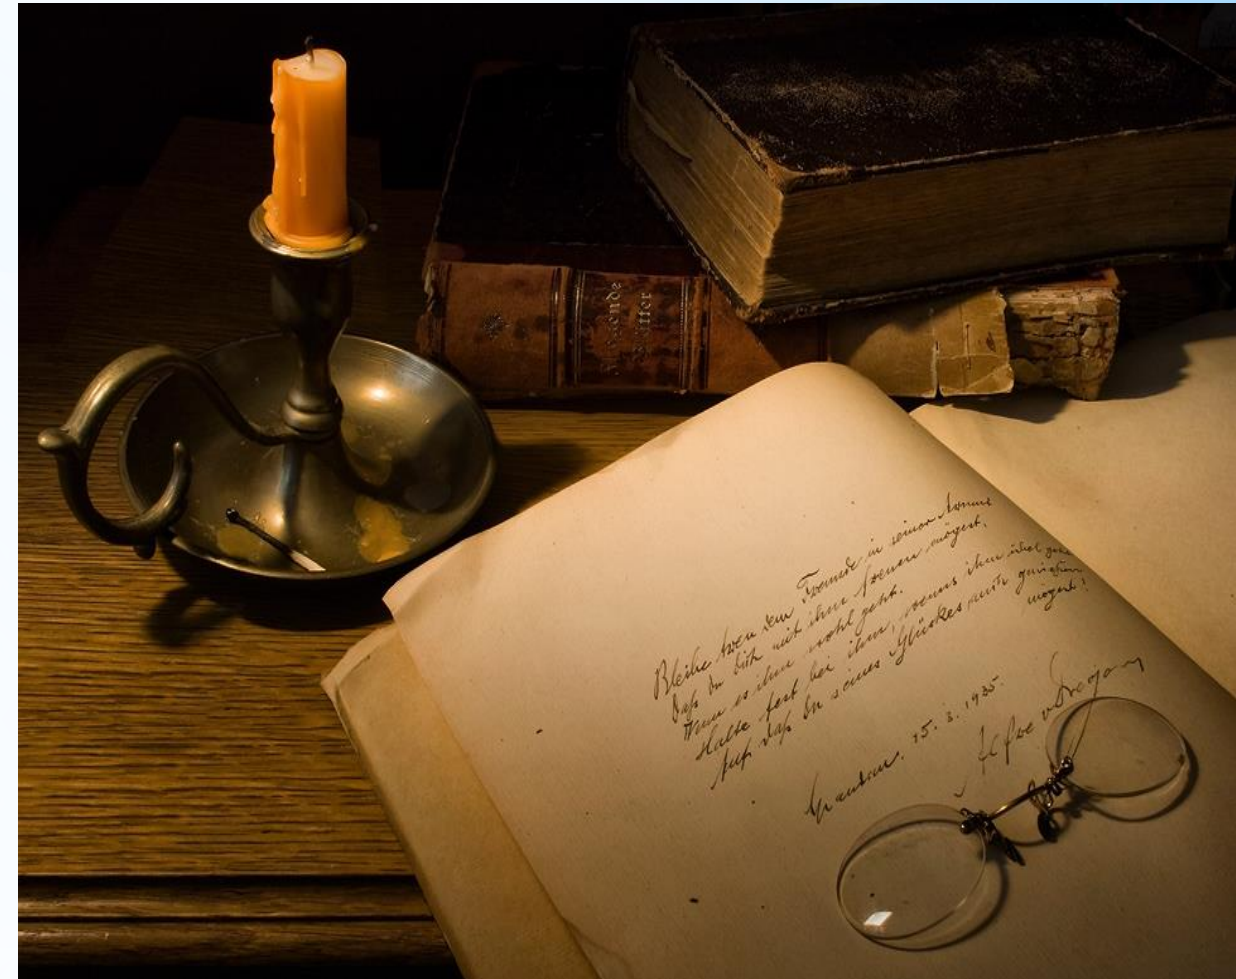 Bleibe treu dem Freunde in seiner Armut
Daß Du dich mit ihm freuen mögest,
Wenn es ihm wohl geht.
Halte fest bei ihm, wenns ihm übel geht
Auf daß Du seines Glückes auch genießen
mögest!
15. 3. 1935.